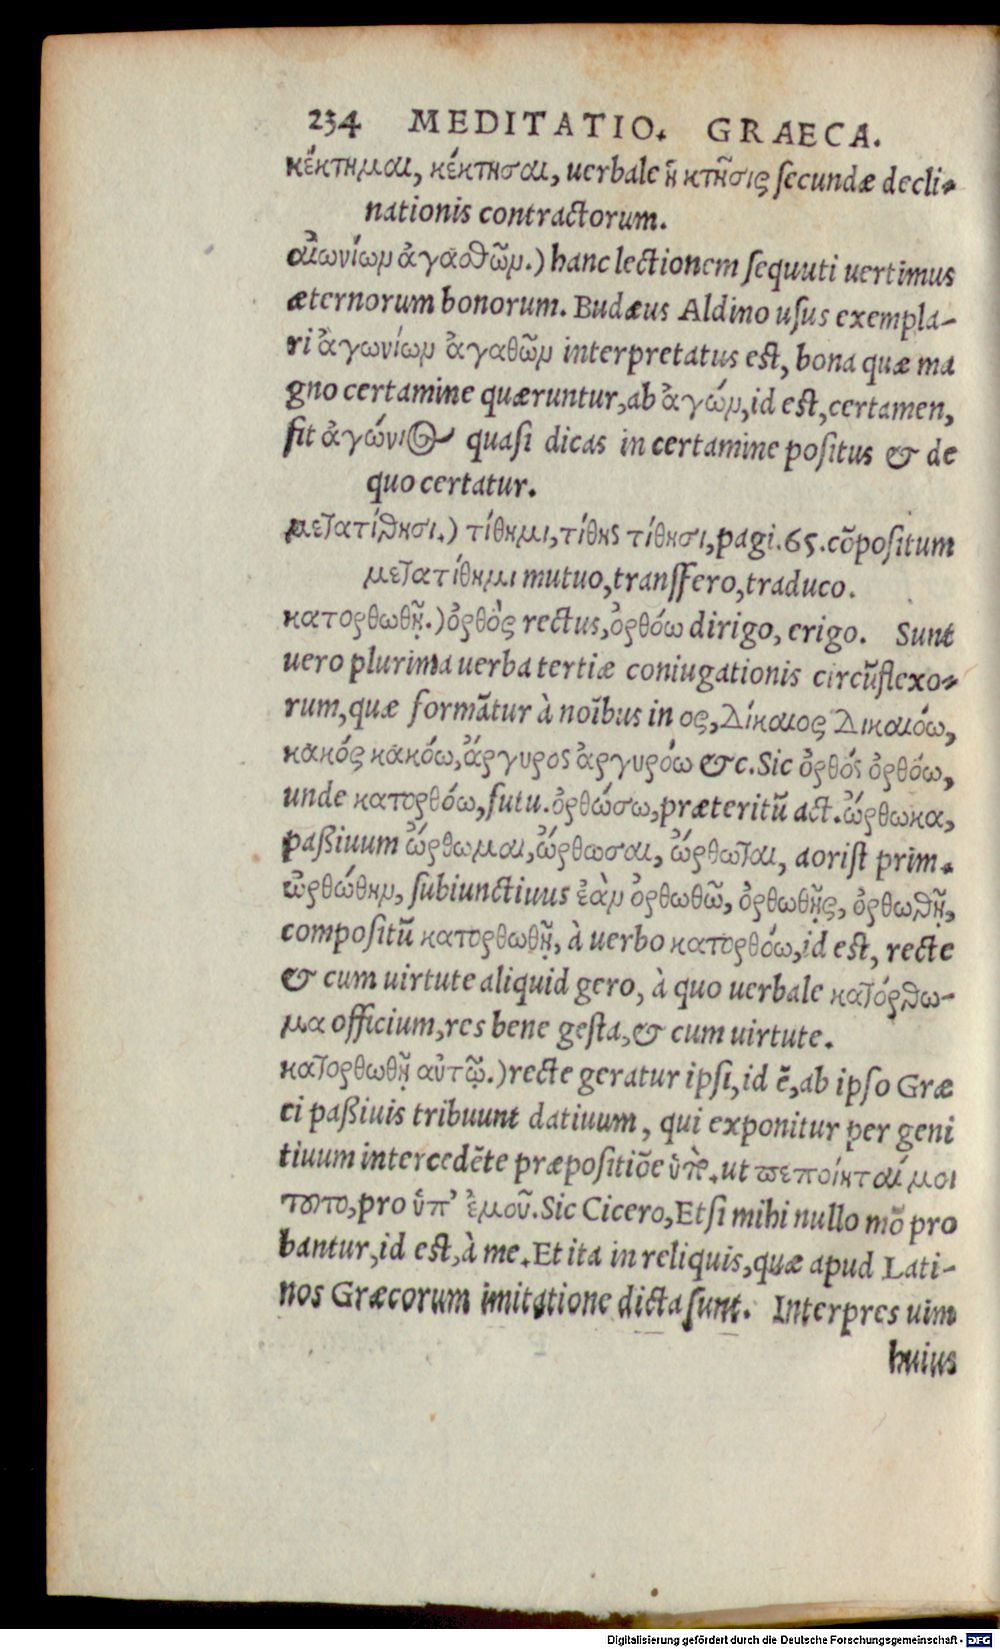 234 MEDITATIO. GRAECA.
κέκτημαι, κέκτησαι, uerbale ἡ κτῆσις secundæ decli-
nationis contractorum.
αἰωνίων ἀγαθῶν.) hanc lectionem sequuti uertimus
æternorum bonorum. Budæus Aldino usus exempla-
ri ἀγωνίων ἀγαθῶν interpretatus est, bona quæ ma
gno certamine quæruntur, ab ἀγών, id est, certamen,
fit ἀγώνιος quasi dicas in certamine positus & de
quo certatur.
μετατίθησι.) τίθημι, τίθης τίθησι, pagi. 65. cōpositum
μετατίθημι mutuo, transfero, traduco.
κατορθωθῇ.) ὀρθὸς rectus, ὀρθόω dirigo, erigo. Sunt
uero plurima uerba tertiæ coniugationis circūflexo-
rum, quæ formātur à noībus in ος, δίκαιος δικαιόω,
κακός κακόω, ἄργυρος ἀργυρόω &c. Sic ὀρθός ὀρθόω,
unde κατορθόω, futu. ὀρθώσω, præteritū act. ὤρθωκα,
paßiuum ὤρθωμαι, ὤρθωσαι, ὤρθωται, aorist prim.
ὠρθώθην, subiunctiuus ἐὰν ὀρθωθῶ, ὀρθωθῇς, ὀρθωθῇ,
compositū κατορθωθῇ, à uerbo κατορθόω, id est, recte
& cum uirtute aliquid gero, à quo uerbale κατόρθω-
μα officium, res bene gesta, & cum uirtute.
κατορθωθῇ αὐτῷ.) recte geratur ipsi, id ē, ab ipso Græ
ci paßiuis tribuunt datiuum, qui exponitur per geni
tiuum intercedēte præpositiōe ὑπὲρ. ut πεποίηταί μοι
τοῦτο, pro ὑπ' ἐμοῦ. Sic Cicero, Etsi mihi nullo mō pro
bantur, id est, à me. Et ita in reliquis, quæ apud Lati-
nos Græcorum imitatione dicta sunt. Interpres uim
huius
Digitalisierung gefördert durch die Deutsche Forschungsgemeinschaft - DFG